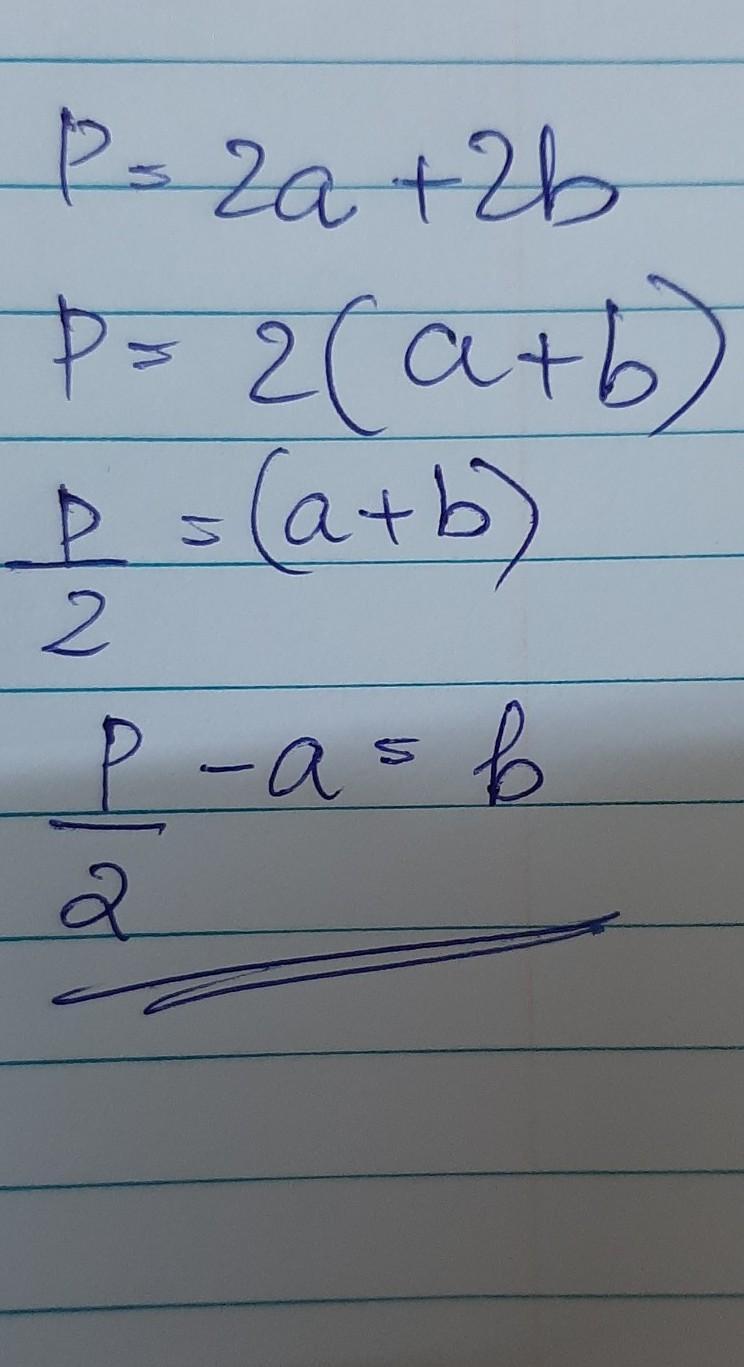 P = 2a + 2b
P = 2(a+b)
P/2 = (a+b)
P/2 - a = b